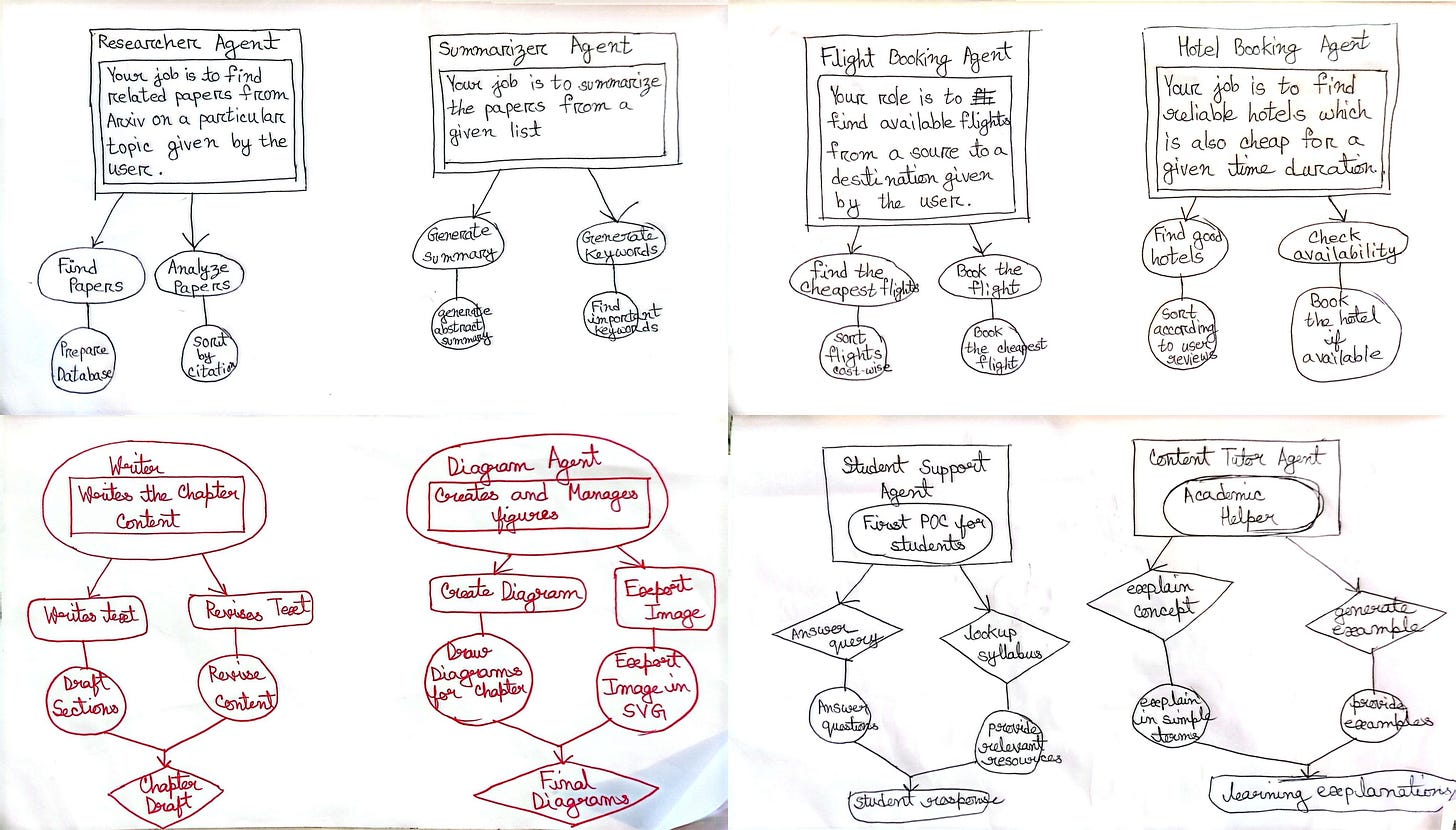 Researcher Agent
Your job is to find
related papers from
Arxiv on a particular
topic given by the
user.
Find
Papers
Analyze
Papers
Prepare
Database
Sort
by
citation
Summarizer Agent
Your job is to summarize
the papers from a
given list
Generate
Summary
Generate
Keywords
generate
abstract
summary
Find
important
keywords
Flight Booking Agent
Your role is to
find available flights
from a soure to a
destination given
by the user.
find the
cheapest flights
Book the
flight
sort
flights
cost-wise
Book
the cheapest
flight
Hotel Booking Agent
Your job is to find
reliable hotels which
is also cheap for a
given time duration.
Find good
hotels
Check
availability
sort
according
to user
reviews
Book
the hotel
if
available
Writer
Writes the Chapter
Content
Writes text
Revises Text
Draft
Sections
Revise
Content
Chapter
Draft
Diagram Agent
Creates and Manages
figures
Create Diagram
Export
Image
Draw
Diagrams
for chapter
Export
Image in
SVG
Final
Diagrams
Student Support
Agent
First POC for
students
Answer
query
lookup
syllabus
Answer
questions
provide
relevant
resources
student response
Content Tutor Agent
Academic
Helper
explain
concept
generate
example
explain
in simple
terms
provide
examples
learning explanations